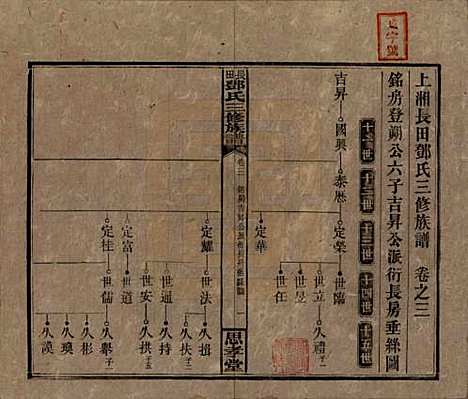 上湘長田鄧氏三修族譜 卷之三
銘房登朔公六子吉昇公派衍長房垂絲圖
十一世 十二世 十三世 十四世 十五世
吉昇 國興 泰歷 定榮 世臨
世立 久禮
世昱
定華 世任
長田鄧氏三修族譜
卷三
思孝堂
定耀 世法 久揖
久扶
世通 久持
世安 久拱
定富 世道
定桂 世儒 久舉
久彬
久瑛
久謨